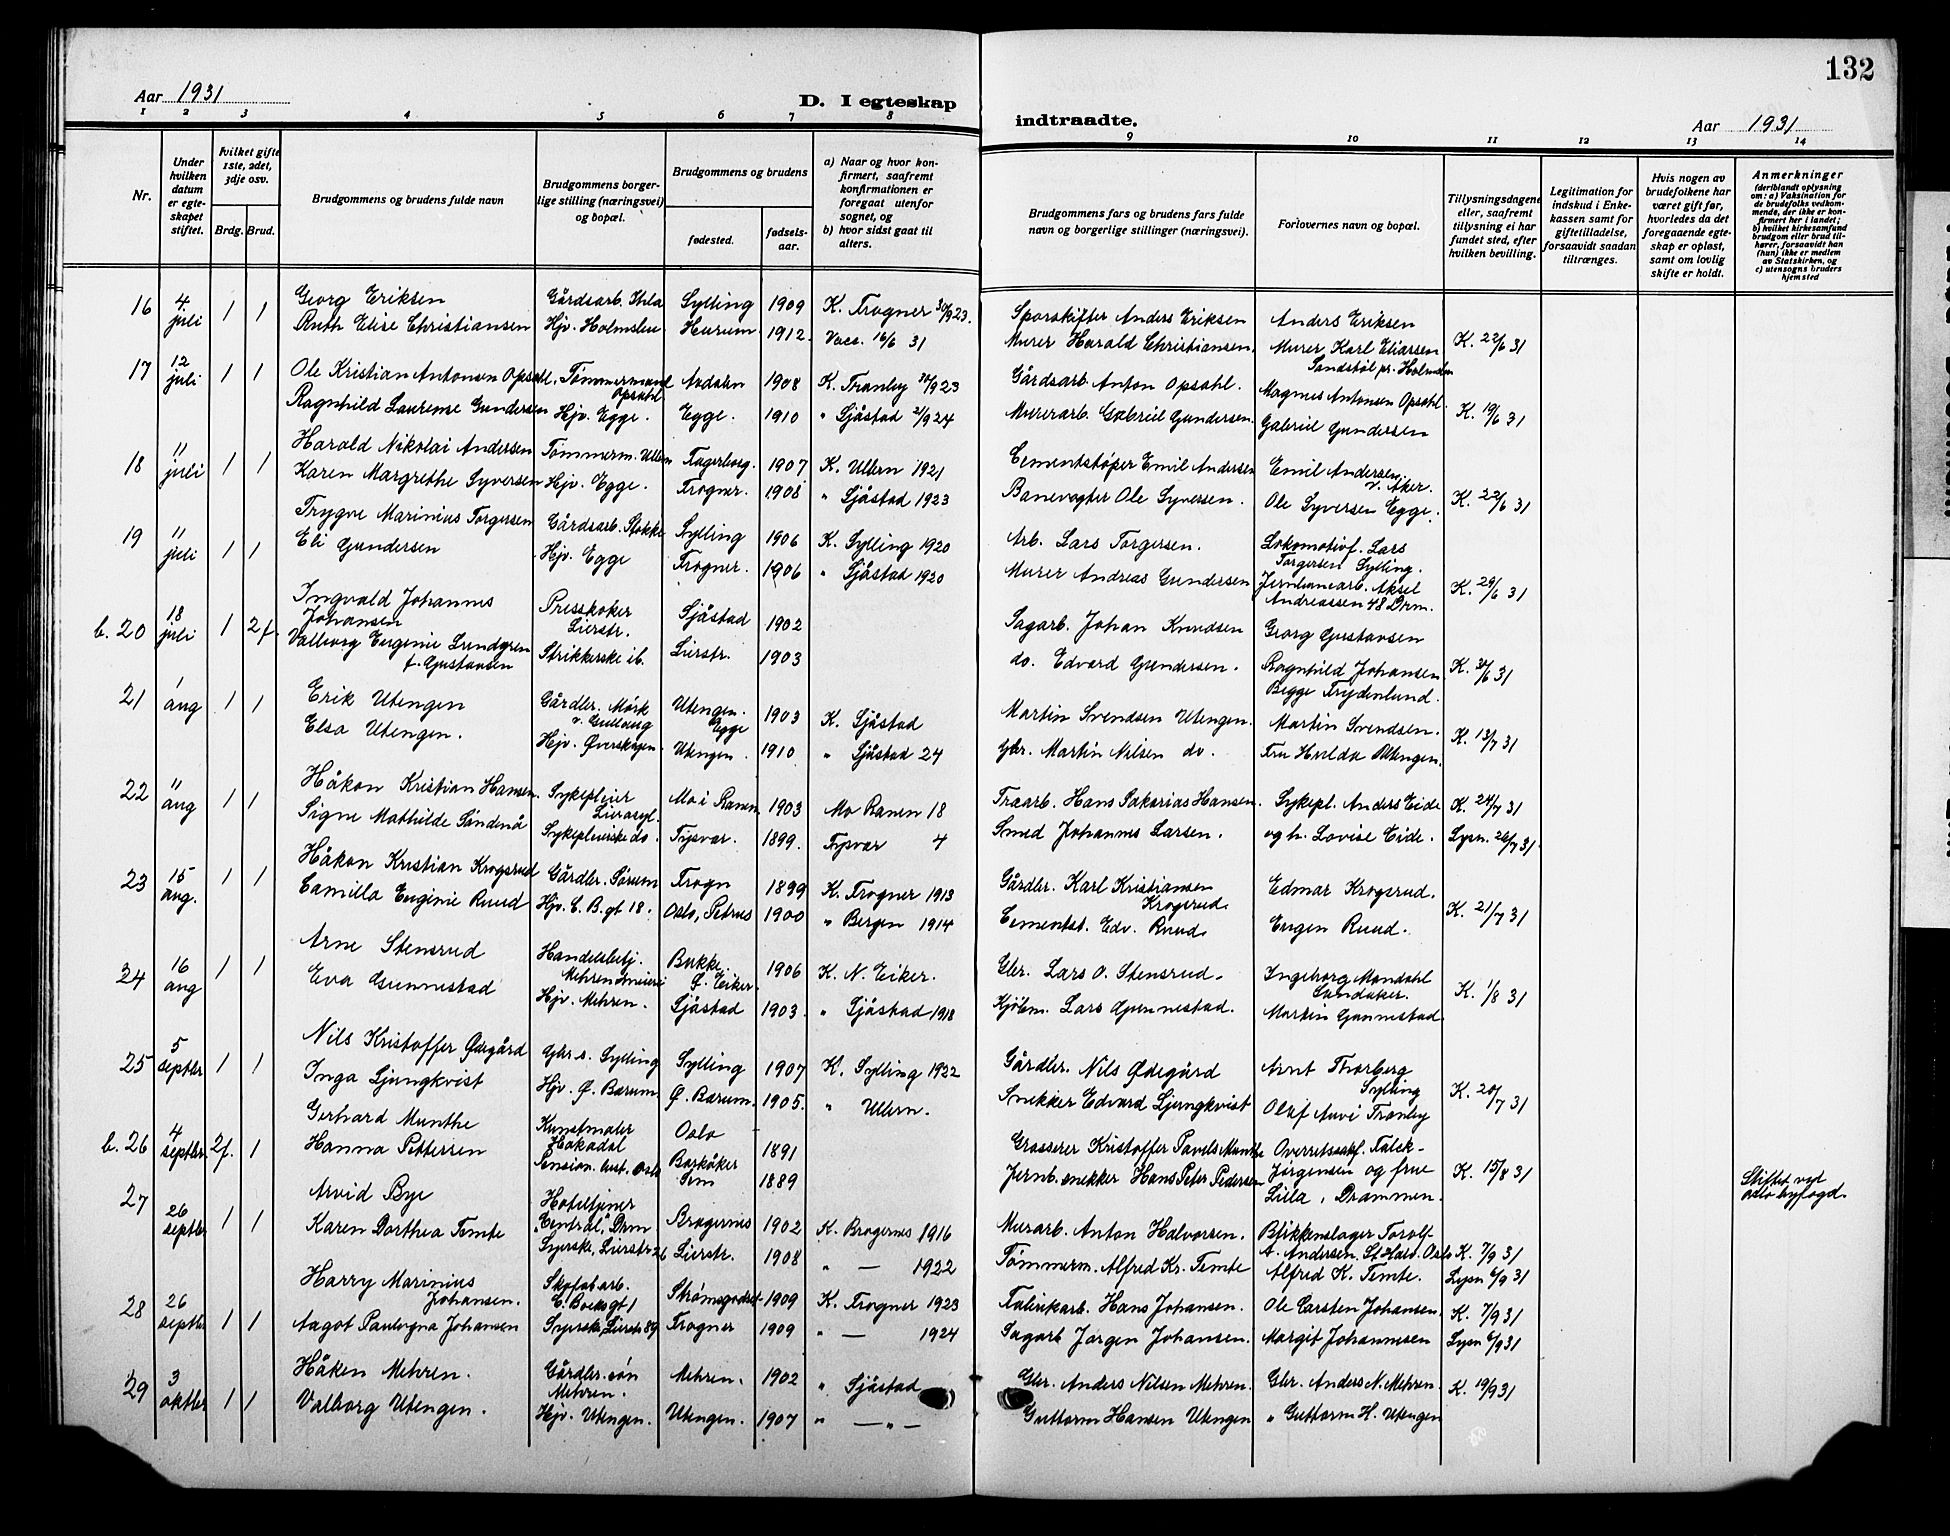 132
Aar 1931
D. I egteskap
indtraadte.
Aar 1931
1 2 3 4 5 6 7 8 9 10 11 12 13 14
Nr.
Under hvilken datum er egteskapet stiftet.
Hvilket gifte 1ste, 2det, 3dje osv.
Brdg. Brud.
Brudgommens og brudens fulde navn
Brudgommens borgerlige stilling (næringsvei) og bopæl.
Brudgommens og brudens
fødested. fødselsaar.
a) Naar og hvor konfirmert, saafremt konfirmationen er foregaat utenfor sognet, og
b) hvor sidst gaat til alters.
Brudgommens fars og brudens fars fulde navn og borgerlige stillinger (næringsvei).
Forlovernes navn og bopæl.
Tillysningsdagene eller, saafremt tillysning ei har fundet sted, efter hvilken bevilling.
Legitimation for indskud i Enkekassen samt for giftetilladelse, forsaavidt saadan tiltrænges.
Hvis nogen av brudefolkene har været gift før, hvorledes da det foregaaende egteskap er opløst, samt om lovlig skifte er holdt.
Anmerkninger
(deriblandt oplysning om: a) Vaksination for de brudefolks vedkommende, der ikke er konfirmert her i landet; b) hvilket kirkesamfund brudgom eller brud tilhører, forsaavidt han (hun) ikke er medlem av Statskirken, og c) utensogns bruders hjemsted
16 4 juli 1 1 Georg Eriksen Gårdsarb. Sylling 1909 K. Frogner 30/9 23. Sporskifter Anders Eriksen Anders Eriksen
Ruth Elise Christiansen Hjv. Holmsbu Hurum 1912 Vacc. 16/6 31 Murer Harald Christiansen. Murer Karl Eliassen K. 22/6 31
17 12 juli 1 1 Ole Kristian Antonsen Opsahl, Tømmermand Opsahl 1908 K. Tranby 30/9 23 Gårdsarb. Anton Opsahl. Magnus Antonsen Opsahl
Ragnhild Laurense Gundersen Hjv. Egge. Egge. 1910 " Sjåstad 21/9 24 Murerarb. Gabriel Gundersen. Gabriel Gundersen K. 19/6 31
18 11 juli 1 1 Harald Nikolai Andersen Tømmerm. Ullern Fagerborg. 1907 K. Ullern 1921 Cementstøper Emil Andersen Emil Andersen v. Aker.
Karen Margrethe Syversen Hjv. Egge. Frogner. 1908 " Sjåstad 1923 Banevogter Ole Syversen. Ole Syversen Egge. K. 22/6 31
19 11 juli 1 1 Trygve Marinius Torgersen Gårdsarb. Stokke Sylling 1906 K. Sylling 1920 Arb. Lars Torgersen. Lokomotivf. Lars Torgersen Sylling.
Eli Gundersen Hjv. Egge Frogner. 1906 " Sjåstad 1920 Murer Andreas Gundersen Jernbanearb. Aksel Andreassen 48 Drm. K. 29/6 31
b. 20 18 juli 1 2 f. Ingvald Johannes Johansen Presskoker Lierstr. Sjåstad 1902 Sagarb. Johan Knudsen Georg Gustavsen
Valborg Eugenie Lundgren f. Gustavsen Strikkerske ib. Lierstr. 1903 do. Edvard Gundersen. Ragnhild Johansen Begge Frydenlund. K. 30/6 31
21 1 aug 1 1 Erik Utengen Gårdbr. Mørk v. Gullaug Utengen. Egge 1903 K. Sjåstad Martin Svendsen Utengen. Martin Svendsen.
Elsa Utengen. Hjv. Øverskogen. Utengen. 1910 " Sjåstad 24 Gbr. Martin Nilsen do. Fru Hulda Utengen. K. 13/7 31
22 11 aug 1 1 Håkon Kristian Hansen. Sykepleier Lierasyl. Mo i Ranen. 1903 Mo Ranen 18 Traarb. Hans Sakarias Hansen. Sykepl. Anders Eide K. 24/7 31
Signe Mathilde Sandnå Sykepleierske do. Tysvar. 1899. Tysvar 4 Smed Johannes Larsen. og h. Lovise Eide. Lysn. 26/7 31.
23 15 aug. 1 1 Håkon Kristian Krogsrud Gårdbr. Sørum Frogn 1899 K. Frogner 1913 Gårdbr. Karl Kristiansen Krogsrud. Edmar Krogsrud.
Camilla Eugenie Ruud Hjv. C. B. gt 18. Oslo, Petrus 1900 " Bergen 1914 Cementst. Edv. Ruud. Eugen Ruud. K. 21/7 31
24 16 aug 1 1 Arne Stensrud Handelsbetj. Mehren Bakke, Ø. Eiker. 1906 K. N. Eiker. Gbr. Lars O. Stensrud. Ingeborg Mandahl
Eva Gunnestad Hjv. Mehren. Sjåstad 1903. " Sjåstad 1918 Kjøbm. Lars Gunnestad. Martin Gunnestad K. 1/8 31
25 5 septbr 1 1 Nils Kristoffer Ødegård Gbr s. Sylling Sylling 1907 K. Sylling 1922 Gårdbr. Nils Ødegård Arnt Thorberg Sylling
Inga Ljungkvist Hjv. Ø. Bærum Ø. Bærum. 1905. " Ullern. Snekker Edvard Ljungkvist Olaf Tranby K. 20/7 31
b. 26 4 septbr. 2f. 1 Gerhard Munthe Kunstmaler Hakadal Oslo 1891 Grosserer Kristoffer Pavels Munthe Overretssakf. Falck-Jørgensen og frue
Hanna Pettersen Pension. best. Oslo Barkåker Sem 1889 Jernb.snekker Hans Peter Pedersen Lilla, Drammen. K. 15/8 31 Stiftet ved Oslo byfogd.
27 26 septbr 1 1 Arvid Bye Hoteltjener "Central", Drm Bragernes 1902 K. Bragernes 1916 Murarb. Anton Halvorsen. Blikkenslager Torolf A. Andersen. St Halv. Oslo K. 7/9 31
Karen Dorthea Temte Syerske, Lierstr 26 Lierstr. 1908 " — 1922 Tømmerm. Alfred Kr. Temte Alfred K. Temte. Lysn 6/9 31
28 26 septbr 1 1 Harry Marinius Johansen. Skofab arb. C. Boeks gt 1 Strømsgodset 1909 K. Frogner 1923 Fabrikarb. Hans Johansen. Ole Carsten Johansen K. 7/9 31
Aagot Paulovna Johansen Syerske Lierstr 89 Frogner 1909 " — 1924 Sagarb Jørgen Johansen. Margit Johannesen Lysn 6/9 31
29 3 oktbr 1 1 Håken Mehren. Gårdbr. søn Mehren. Mehren. 1902 " Sjåstad Gbr. Anders Nilsen Mehren. Gbr. Anders N. Mehren. K. 19/9 31
Valborg Utengen. Hjv. Utengen. Utengen. 1907 " — " — Guttorm Hansen Utengen " Guttorm H. Utengen